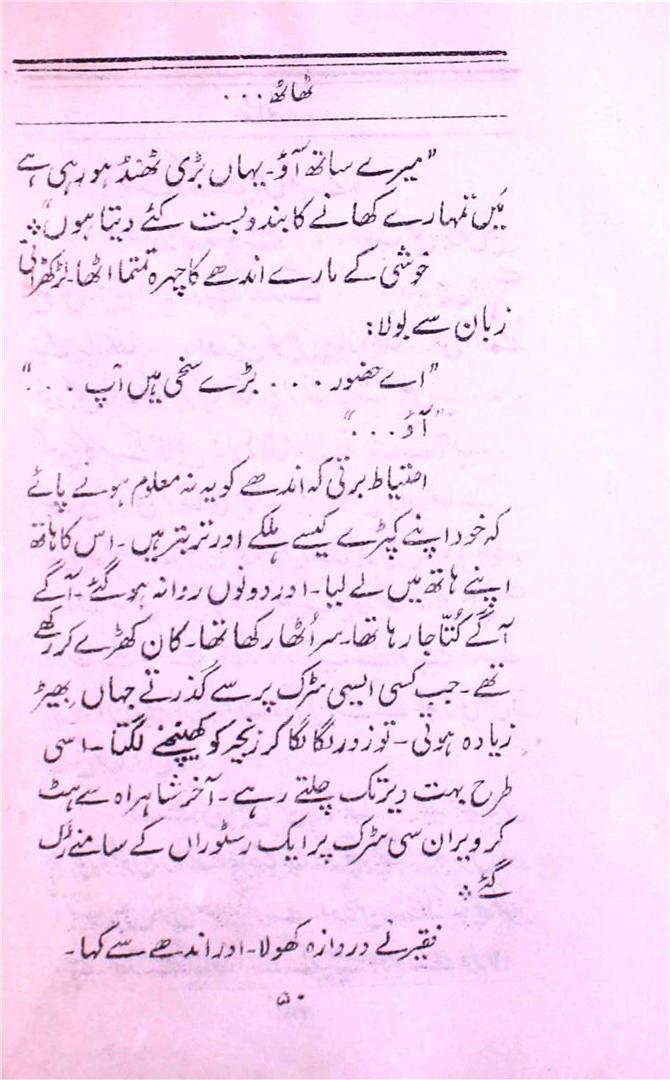 ٹھاٹھ ...
"میرے ساتھ آؤ۔ یہاں بڑی ٹھنڈ ہو رہی ہے
میں تمہارے کھانے کا بندوبست کئے دیتا ہوں"؞
خوشی کے مارے اندھے کا چہرہ تمتما اٹھا۔ لڑکھڑاتی
زبان سے بولا:
"اے حضور .... بڑے سخی ہیں آپ ...."
"آؤ ..."
احتیاط برتی کہ اندھے کو یہ نہ معلوم ہونے پائے
کہ خود اپنے کپڑے کیسے ہلکے اور تر بتر ہیں۔ اس کا ہاتھ
اپنے ہاتھ میں لے لیا۔ اور دونوں روانہ ہو گئے۔ آگے
آگے کُتّا جا رہا تھا۔ سر اُٹھا رکھا تھا۔ کان کھڑے کر رکھے
تھے۔ جب کسی ایسی سڑک پر سے گذرتے جہاں بھیڑ
زیادہ ہوتی۔ تو زور لگا لگا کر زنجیر کو کھینچنے لگتا۔ اسی
طرح بہت دیر تک چلتے رہے۔ آخر شاہراہ سے ہٹ
کر ویران سی سڑک پر ایک رستوراں کے سامنے رُک
گئے؞
فقیر نے دروازہ کھولا۔ اور اندھے سے کہا۔
۵۰